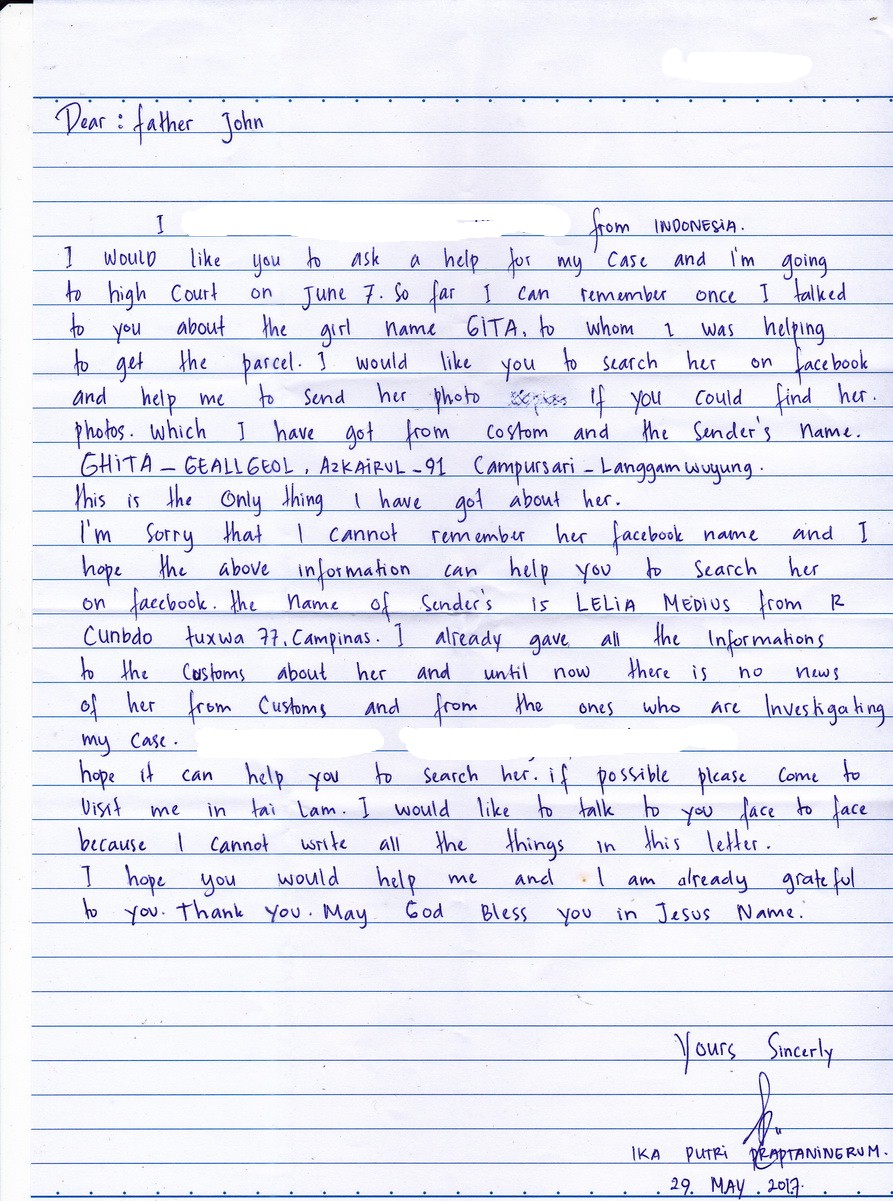 Dear : father John
I from INDONESIA.
I would like you to ask a help for my case and I'm going
to high Court on June 7. So far I can remember once I talked
to you about the girl name GITA, to whom I was helping
to get the parcel. I would like you to search her on facebook
and help me to send her photo If you could find her.
photos. which I have got from costom and the Sender's name.
GHITA – GEALLGEOL, AZKAIRUL – 91 Campursari – Langgam wuyung.
this is the Only thing I have got about her.
I'm Sorry that I cannot remember her facebook name and I
hope the above information can help you to Search her
on faecbook. the Name of Sender's is LELIA MEDIUS from R
Cunbdo tuxwa 77, Campinas. I already gave all the Informations
to the Customs about her and until now there is no news
of her from Customs and from the ones who are Investigating
my case.
hope it can help you to search her. if possible please come to
visit me in tai Lam. I would like to talk to you face to face
because I cannot write all the things in this letter.
I hope you would help me and I am already grateful
to you. Thank You. May God Bless you in Jesus Name.
Yours Sincerly
IKA PUTRI PRAPTANINERUM.
29. MAY. 2017.